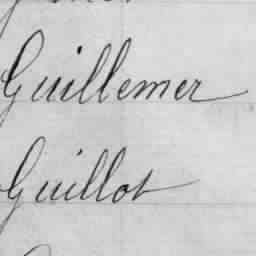 Guillemer
Guillot